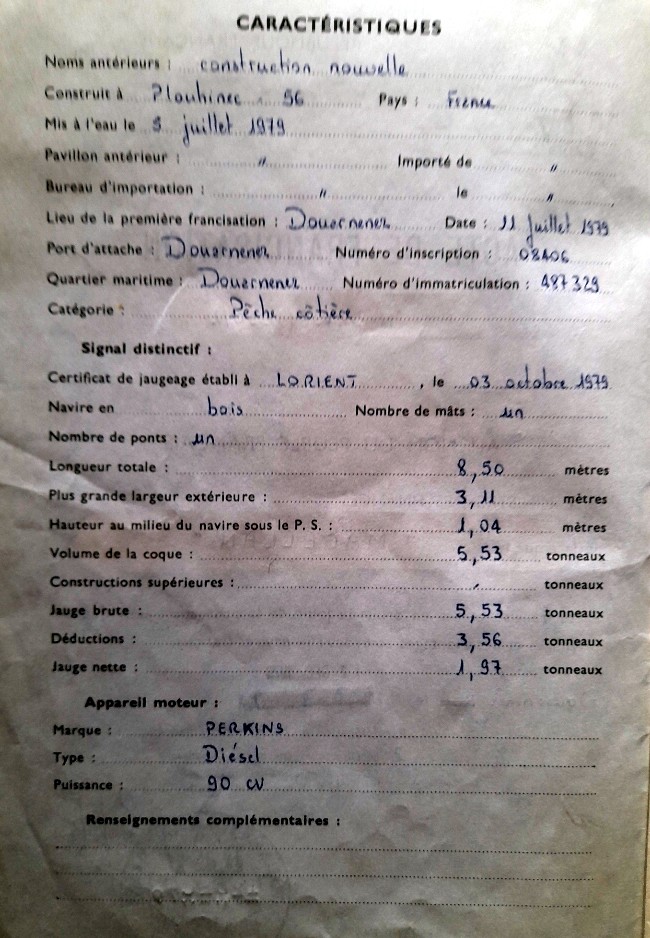 CARACTÉRISTIQUES
Noms antérieurs : construction nouvelle
Construit à Plouhinec - 56 Pays : France
Mis à l'eau le 3 juillet 1979
Pavillon antérieur : " Importé de "
Bureau d'importation : " le "
Lieu de la première francisation : Douarnenez Date : 11 juillet 1979
Port d'attache : Douarnenez Numéro d'inscription : 08406
Quartier maritime : Douarnenez Numéro d'immatriculation : 487329
Catégorie : Pêche côtière
Signal distinctif :
Certificat de jaugeage établi à LORIENT, le 03 octobre 1979
Navire en bois Nombre de mâts : un
Nombre de ponts : un
Longueur totale : 8,50 mètres
Plus grande largeur extérieure : 3,11 mètres
Hauteur au milieu du navire sous le P. S. : 1,04 mètres
Volume de la coque : 5,53 tonneaux
Constructions supérieures : tonneaux
Jauge brute : 5,53 tonneaux
Déductions : 3,56 tonneaux
Jauge nette : 1,97 tonneaux
Appareil moteur :
Marque : PERKINS
Type : Diésel
Puissance : 90 CV
Renseignements complémentaires :